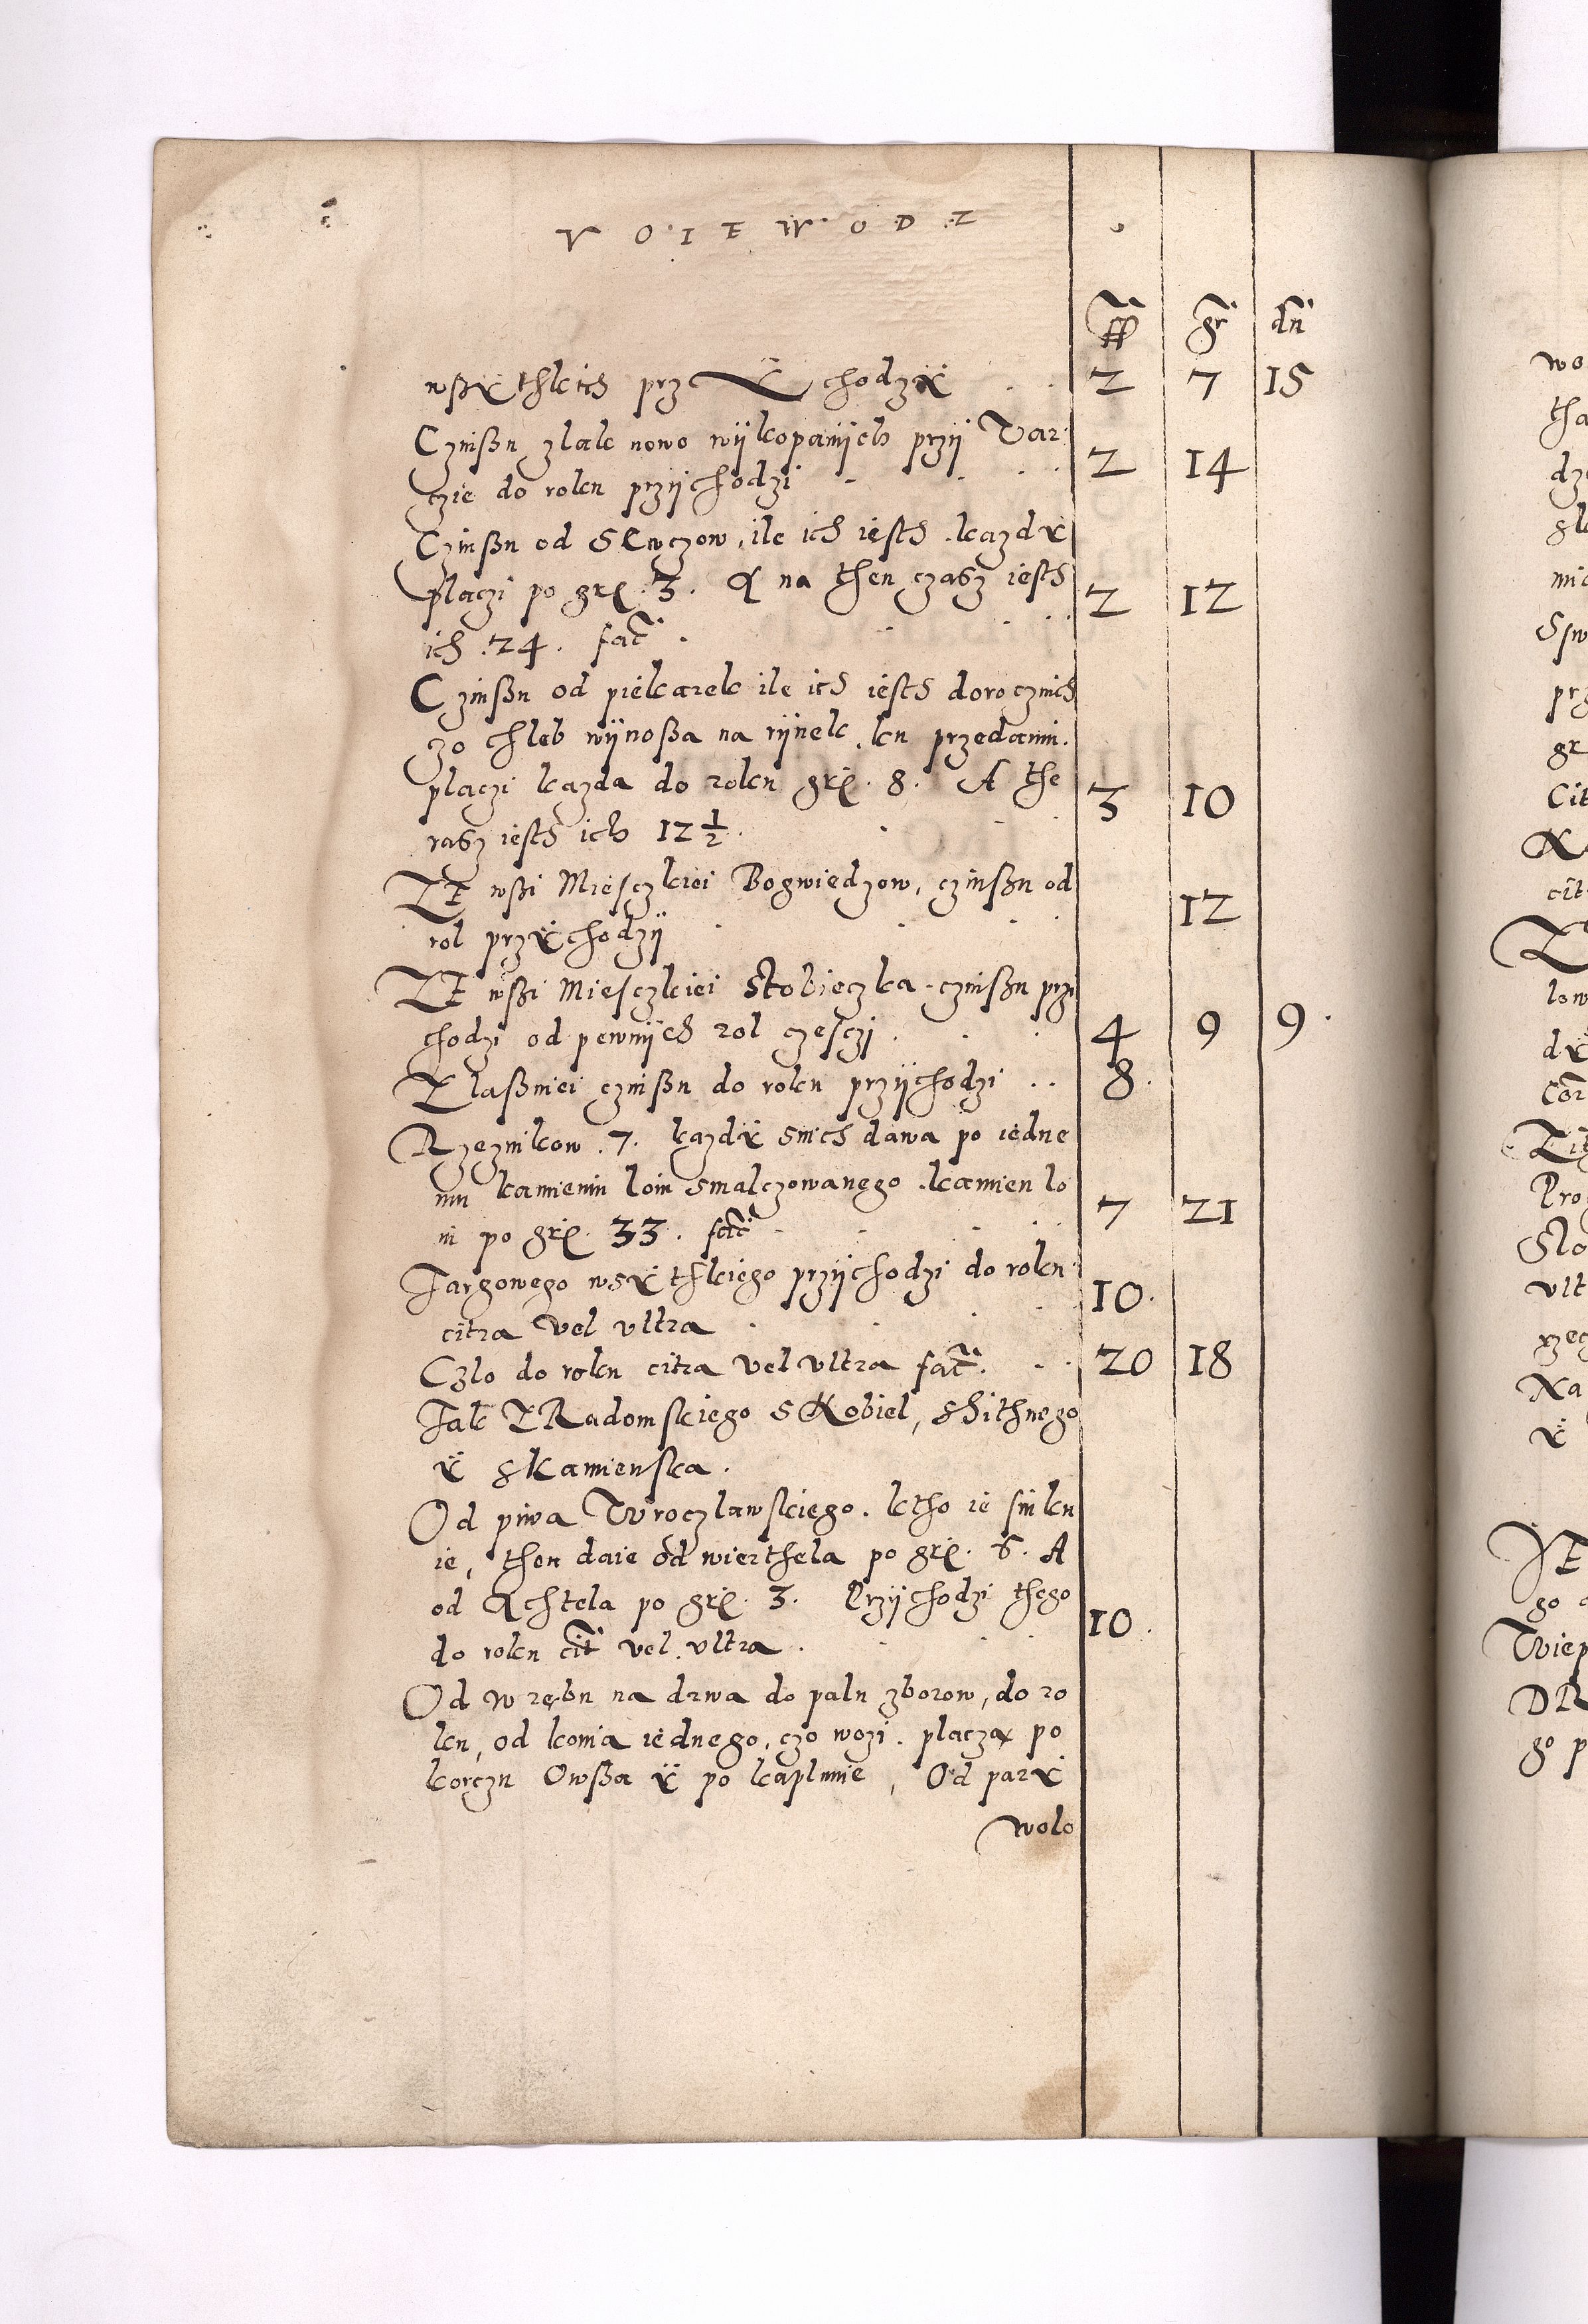 VOIEWODZ
ff gr dn
wßÿthkich przÿchodzÿ . . 2 7 15
Czinßu złak nowo wijkopanijch przij War
czie do roku przijchodzi . . . 2 14
Czinßu od Sewczow, ile ich iesth, kazdÿ
płaczi po grß. 3. A na then czasz iesth
ich .24. fac̃ . . . . 2 12
Czinßu od piekarek ile ich iesth dorocznich
zo chleb wijnoßa na rijnek, ku przedaniu.
płaczi kazda do roku grß. 8. A the
rasz iesth ich 12 1/2. . . . 3 10
ZE wßi Miesczkiei Bogwiedzow, czinßu od
rol przÿchodzij . . . . 12
ZE wßi Miesczkiei Stobieczka, czinßu przi
chodzi od pewnijch rol czesczi . . . 4 9 9.
Z łaßniei czinßu do roku przijchodzi . . 8.
Rzeznikow .7. kazdÿ snich dawa po iedne
mu kamieniu łoiu smalczowanego, kamien ło
iu po grß. 33. fac̃ . . . . 7 21
Targowego wsÿthkiego przijchodzi do roku
citra vel vltra . . . . 10.
Czło do roku citra vel vltra fac̃. . . 20 18
Jak Z Radomskiego S Kobiel, s Zithnego
ÿ s Kamienska.
Od piwa Wroczlawskiego, ktho ie sinku
ie, then daie od wierthela po grß. 6. A
od Achtela po grß. 3. Przijchodzi thego
do roku cit̃ vel vltra . . . . 10.
Od wrębu na drwa do palu zborow, do ro
ku, od konia iednego, czo wozi, płaczą po
korczu Owßa ÿ po kapłunie, Od parÿ
wolo